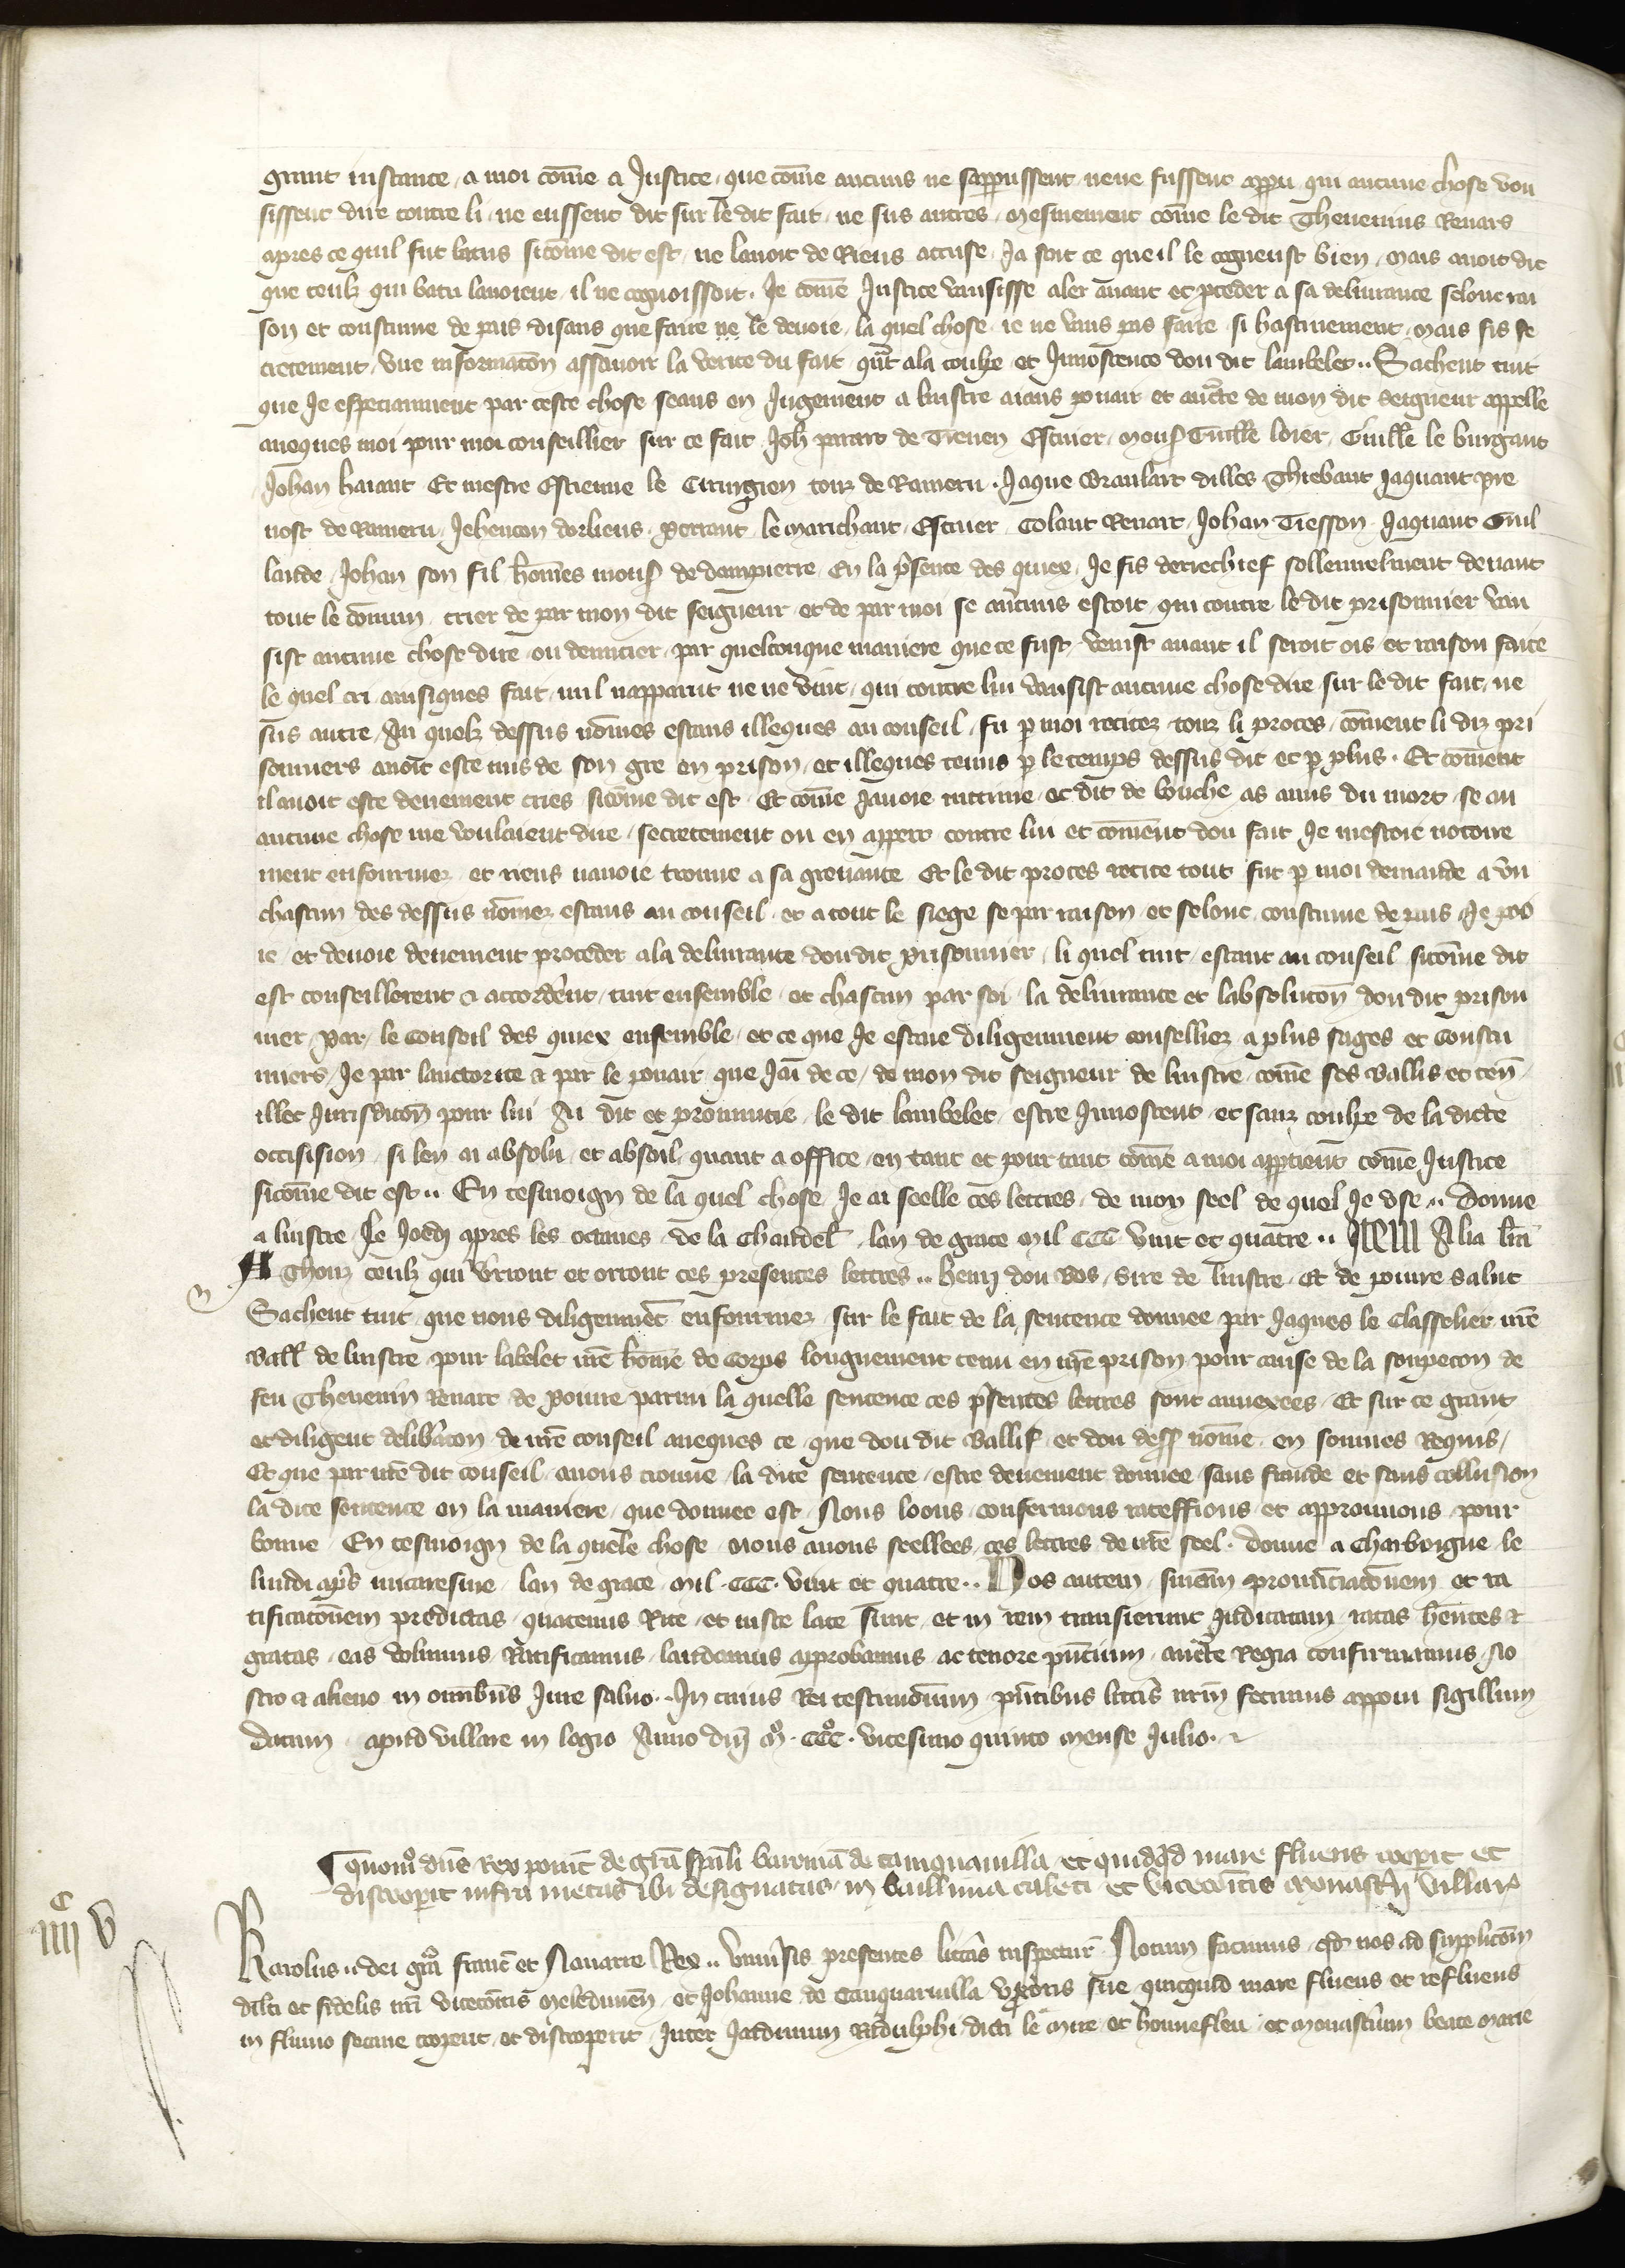 grant instance, a moi cōme a Justice, que cōme aucuns ne sapparussent, neue fussent apparu qui aucune chose vou
sissent dire contre li, ne eussent dit sur le dit fait, ne sus autres, mesmement cōme le dit Thevenins Renars
apres ce quil fut batus sicōme dit est, ne lauoit de Riens accuse, Ja soit ce que il le cogneust bien, mais auoit dit
que ceulz qui batu lauoient, il ne cognoissoit. Je cōme Justice vausisse aler auant et pceder a sa deliurance selonc rai
son et coustume de pais disans que faire ne le deuoie, la quel chose, ie ne vaus pas faire, si hastiuement, mais fis se
cretement, vne informacōn assauoir la verite du fait, qūt a la coulpe et Innoscence dou dit lambelet.. Sachent tuit
que Je especiaument par ceste chose seans en Jugement a luistre aians pouair et auc̄te de mon dit seigneur appelle
auecques moi pour moi conseillier sur ce fait, Joh parart de Treuen Escuier, mons Guille loier, Guille le burgaut
Johan haiaut Et mestre Estienne le Cirurgien touz de Rameru. Jaque Braulart dilles Thiebaut Jaquaut pre
uost de Rameru, Jehencon dorliens, Perraut, le marichaut, Escuier, Colaut Renart, Johan Tiesson, Jaquaut Guil
laude, Johan son fil hōmes mons de dampierre, En la p̄sence des quiex, Je fis derrechief sollennelment deuant
tout le cōmun, crier de par mon dit seigneur et de par moi se aucuns estoit, qui contre le dit prisonnier vau
sist aucune chose dire, ou denuncier, par quelconque maniere que ce fust, venist auant il seroit ois et raison faite
le quel cri ainsiques fait, nul napparut ne ne vint, qui contre lui vausist aucune chose dire sur le dit fait, ne
sus autre, Au quelz dessus nōmes estans illeques au conseil, fu p moi recitez touz li proces, cōment li diz pri
sonniers auoit este mis de son gre en prison, et illeques tenus p le temps dessus dit et p plus. Et cōment
il auoit este deuement cries sicōme dit est. Et cōme Jauoie intime et dit de bouche as amis du mort, se au
aucune chose me vouloient dire, secretement ou en appert contre lui et cōment dou fait, Je mestoie notoire
ment enfourmez et riens nauoie trouue a sa greuance Et le dit proces recite tout fut p moi demande a vn
chascun des dessus nōmez estans au conseil, et a tout le siege se par raison et selonc coustume de pais Je poo
ie, et deuoie deuement proceder a la deliurance dou dit prisonnier, li quel tuit, estant au conseil, sicōme dit
est conseillerent & accorderent, tuit ensemble, et chascun par soi, la deliurance et labsolucōn dou dit prison
nier, Par le conseil des quiex ensemble, et ce que Je estaie diligenment conselliez a plus sages et coustu
miers, Je par lauctorite & par le pouair que Jai de ce, de mon dit seigneur de luistre, cōme ses Ballis et ten
illec Jurisdicōn pour lui Ai dit et pronuncie, le dit lambelet, estre Innoscent, et sanz coulpe de la dicte
occisision, si len ai absolu, et absoil, quant a office, en tant et pour tant cōme a moi apptient cōme Justice
sicōme dit est.. En tesmoign de la quel chose, Je ai seelle ces lettres, de mon seel de quel Je vse.. Donne
a luistre, le Joedi apres les octaues, de la Chandel, lan de grace mil CCC vint et quatre.. ITEM Alia lrā
A Thouz ceulz qui verront et orront ces presentes lettres.. henri dou Bos, Sire de luistre, et de pouure Salut
Sachent tuit que nous diligenmēt enfourmez, sur le fait de la sentence donnee, par Jaques le Classelier nrē
Ball de luistre, pour labelet nrē hōme de corps longuement tenu en nrē prison, pour cause de la soupecon de
feu Theuenin Renart de Pouure parmi la quelle sentence ces p̄sentes lettres sont annexees, Et sur ce grant
et diligent delibacōn de nrē conseil aueques ce, que dou dit Ballif, et dou dess nōme, en sommes Requis,
Et que par nrē dit conseil, auons trouue, la dite sentence, estre deuement donnee, sans fraude et sans collusion
la dite sentence en la maniere, que donnee est, Nous loons, confermons, ratefions, et approuuons, pour
bonne, En tesmoign de la quele chose, nous auons seellees, ces lettres de nrē seel. Donne a Charboigne, le
lundi apres micaresme, lan de grace, mil. CCC. vint et quatre.. Nos autem, sniam pronunciacōnem et ra
tificacōnem predictas, quatenus Rite, et iuste late sunt, et in rem transierunt Judicatam, ratas hentes &
gratas, eas volumus, Ratificamus, laudamus, approbamus, ac tenore pn̄cium, auc̄te Regia confirmamus, No
stro & alieno in omībus Jure saluo.. In cuius Rei testimōnium, pn̄tibus lītteris nrm̄ fecimus apponi sigillum
Datum, apud villare in logio Anno dn̄i mº. CCCº. vicesimo quinto mense Julio.
¶ quomº dn̄s Rex ponit de grā spāli baroniā de tamquauilla et quidqd mare fluens coop̄it et
discoop̄it infra metas ibi designatas, in bailliuia caleti et vicecōitis monasterii villar
C
IIII V
Karolus.. dei grā franc̄ et Nauarre Rex.. Vniu̇sis presentes lītteras inspectur̄ Notum facimus, qd nos ad supplicōm
dilc̄ti et fidelis nr̄i vicecōitis meleduneñ, et Johanne de Tanquaruilla vxoris sue, quicquid mare fluens et refluens
in fluuio secane cooperit, et discooperit, Inter Jardinum Radulphi, dicti le mire, et honnefleu, et monasterium beate marie